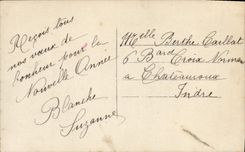 Reçois tous
nos vœux de
bonheur pour la
Nouvelle Année
Blanche
Suzanne
Melle Berthe Caillat
6 Bard Croix Normand
à Chateauroux
Indre